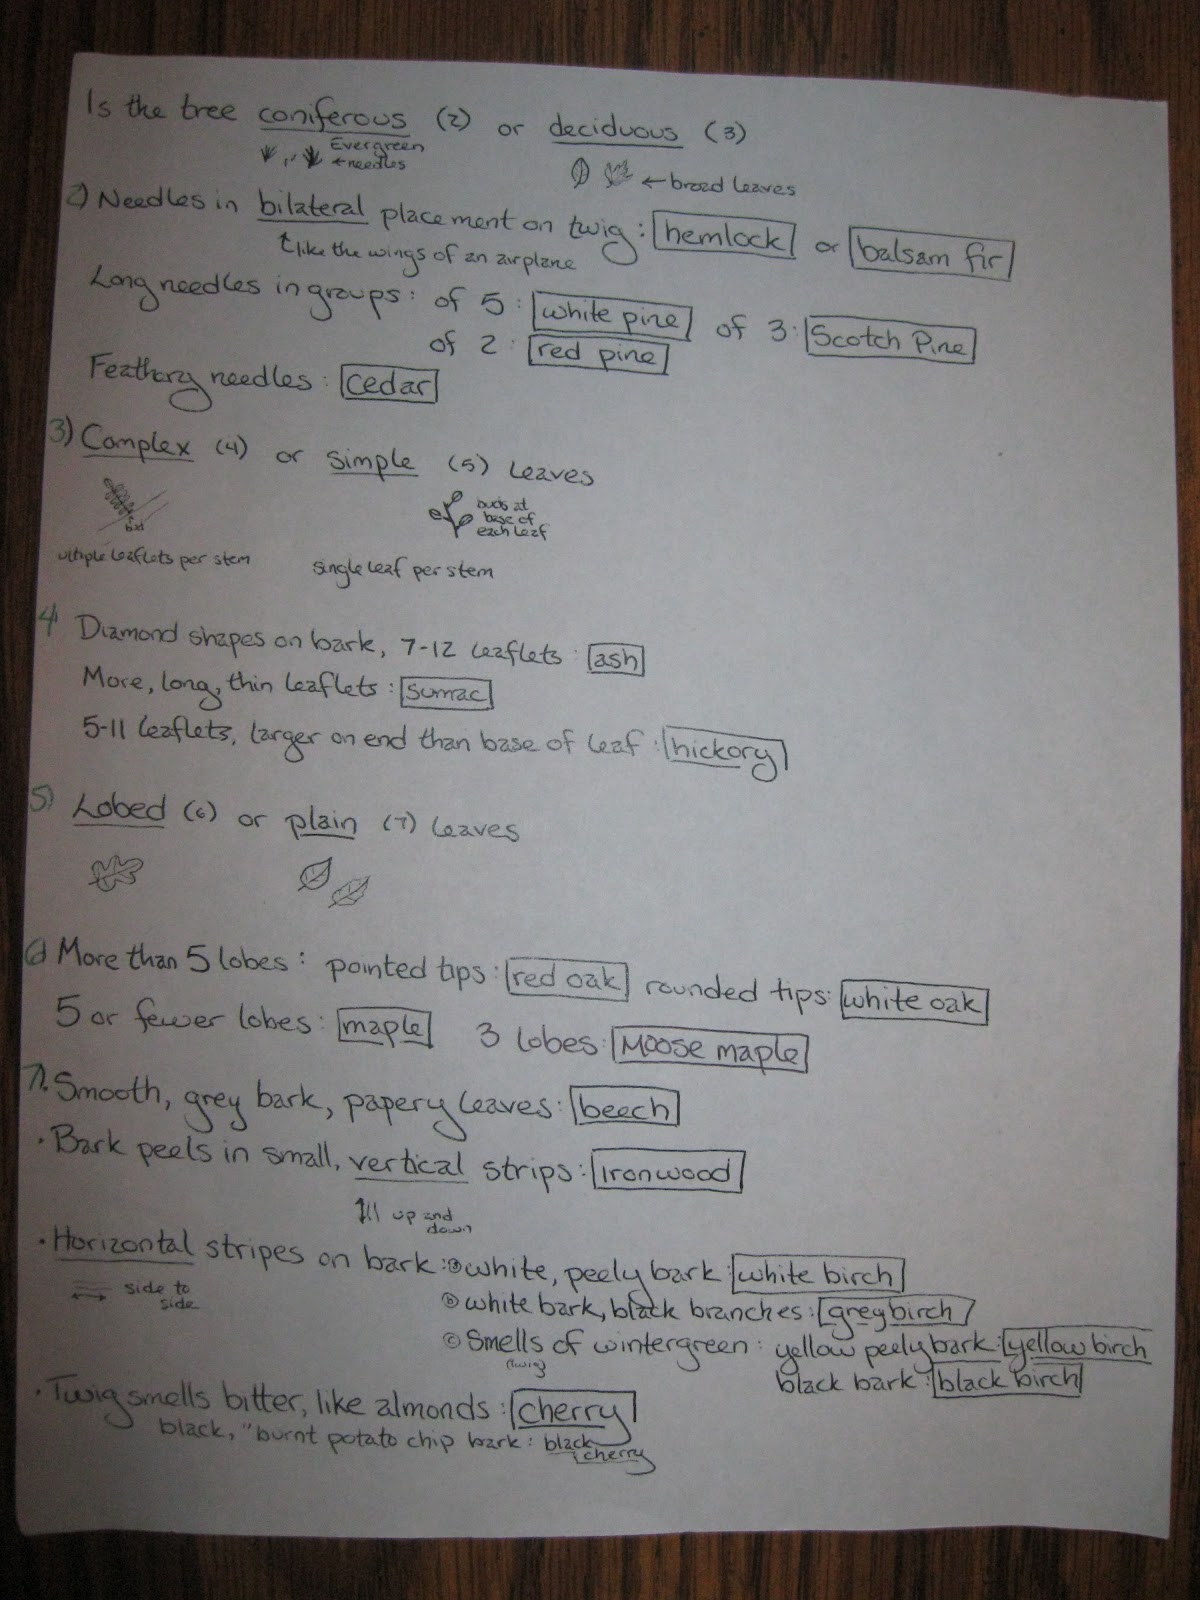 Is the tree coniferous (2) or deciduous (3)
Evergreen
←needles
←broad leaves
2) Needles in bilateral placement on twig: hemlock or balsam fir
like the wings of an airplane
Long needles in groups: of 5: white pine of 3: Scotch Pine
of 2: red pine
Feathery needles: cedar
3) Complex (4) or simple (5) leaves
bud
buds at
base of
each leaf
ultiple leaflets per stem
single leaf per stem
4 Diamond shapes on bark, 7-12 leaflets: ash
More, long, thin leaflets: sumac
5-11 leaflets, larger on end than base of leaf: hickory
5) Lobed (6) or plain (7) leaves
6 More than 5 lobes: pointed tips: red oak rounded tips: white oak
5 or fewer lobes: maple 3 lobes: Moose maple
7. Smooth, grey bark, papery leaves: beech
· Bark peels in small, vertical strips: Ironwood
up and
down
· Horizontal stripes on bark: ⓐ white, peely bark: white birch
side to
side
ⓑ white bark, black branches: grey birch
ⓒ Smells of wintergreen: yellow peely bark: yellow birch
(twig)
black bark: black birch
· Twig smells bitter, like almonds: cherry
black, "burnt potato chip bark: black
cherry